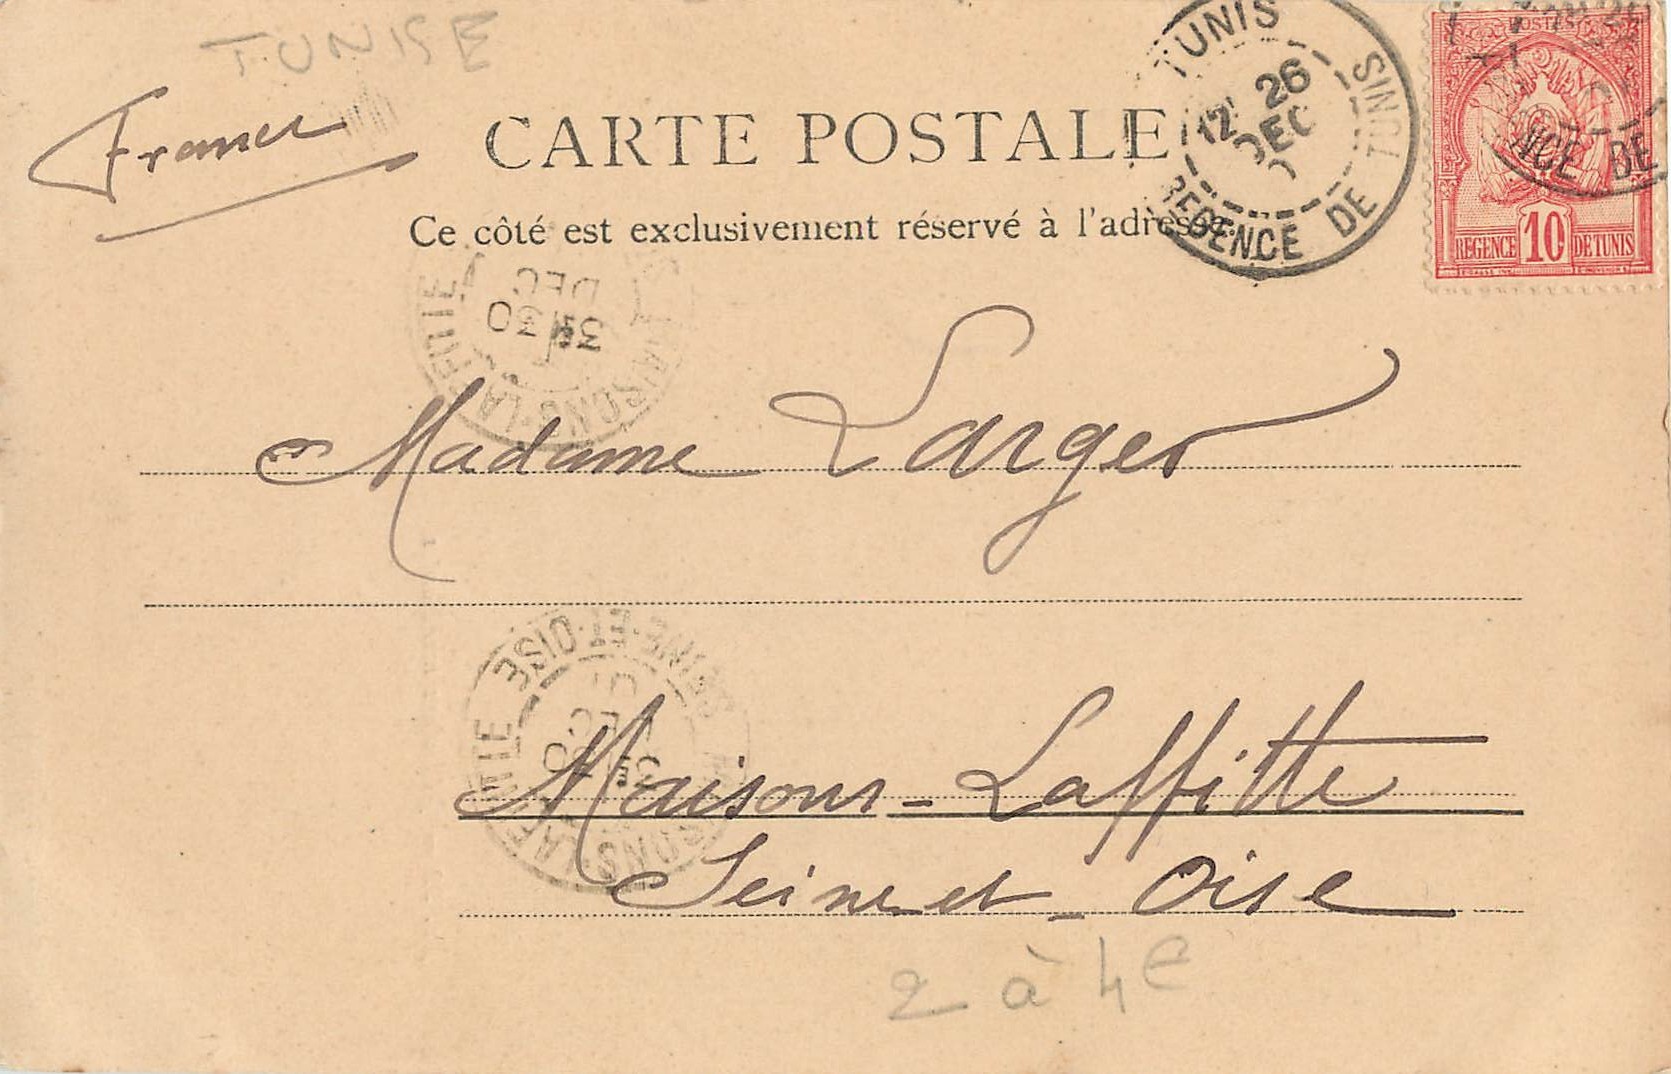 TUNISE
France
CARTE POSTALE
Ce côté est exclusivement réservé à l'adresse.
TUNIS TUNIS
12 26
DEC
REGENCE DE
POSTES
NCE DE
REGENCE 10 DE TUNIS
DEC
3E 30
MAISONS-LAFFITTE
Madame Larger
SEINE-ET-OISE
01
DEC
3E 30
MAISONS-LAFFITTE
Maisons-Laffitte
Seine-et-Oise
2 à 4e